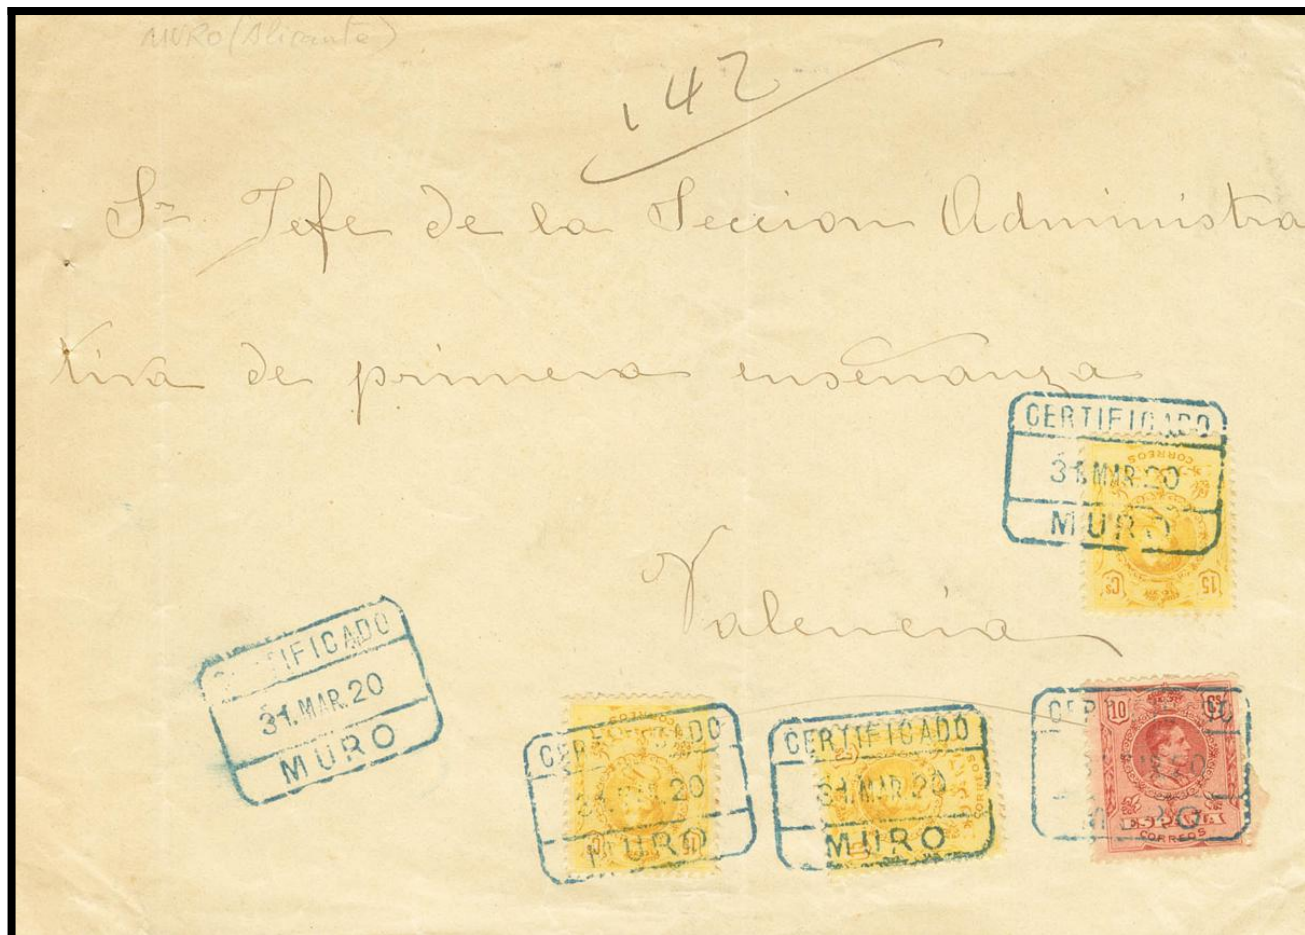 MURO (Alicante)
142
Sr. Jefe de la Seccion Administra
tiva de primera enseñanza
CERTIFICADO
31.MAR.20
MURO
CORREOS
15 Cs
Valencia
CERTIFICADO
31.MAR.20
MURO
CERTIFICADO
31.MAR.20
MURO
15
CERTIFICADO
31.MAR.20
MURO
CORREOS
10 Cs
MURO
ESPAÑA
CORREOS